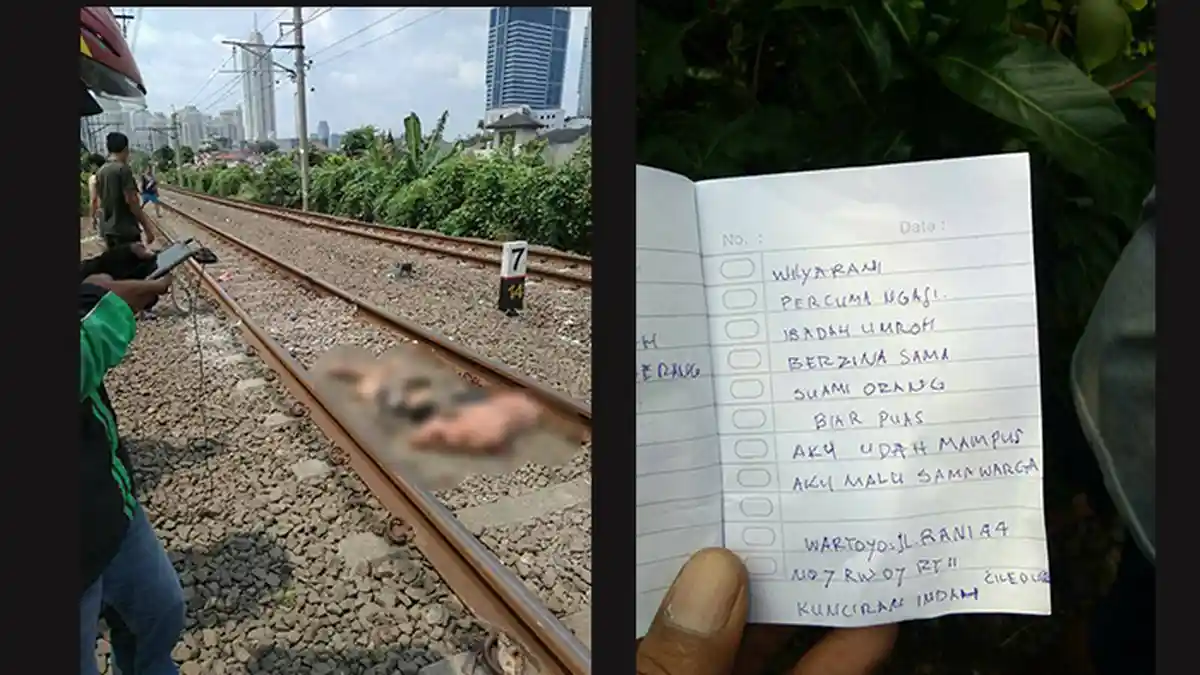 7
14
H
ERANG
No. : Date :
WILYARANI
PERCUMA NGAJI.
IBADAH UMROH
BERZINA SAMA
SUAMI ORANG
BIAR PUAS
AKU UDAH MAMPUS
AKU MALU SAMA WARGA
WARTOYO. JL. RANI 44
NO 7 RW 07 RT 11
KUNCIRAN INDAH CILEDUG